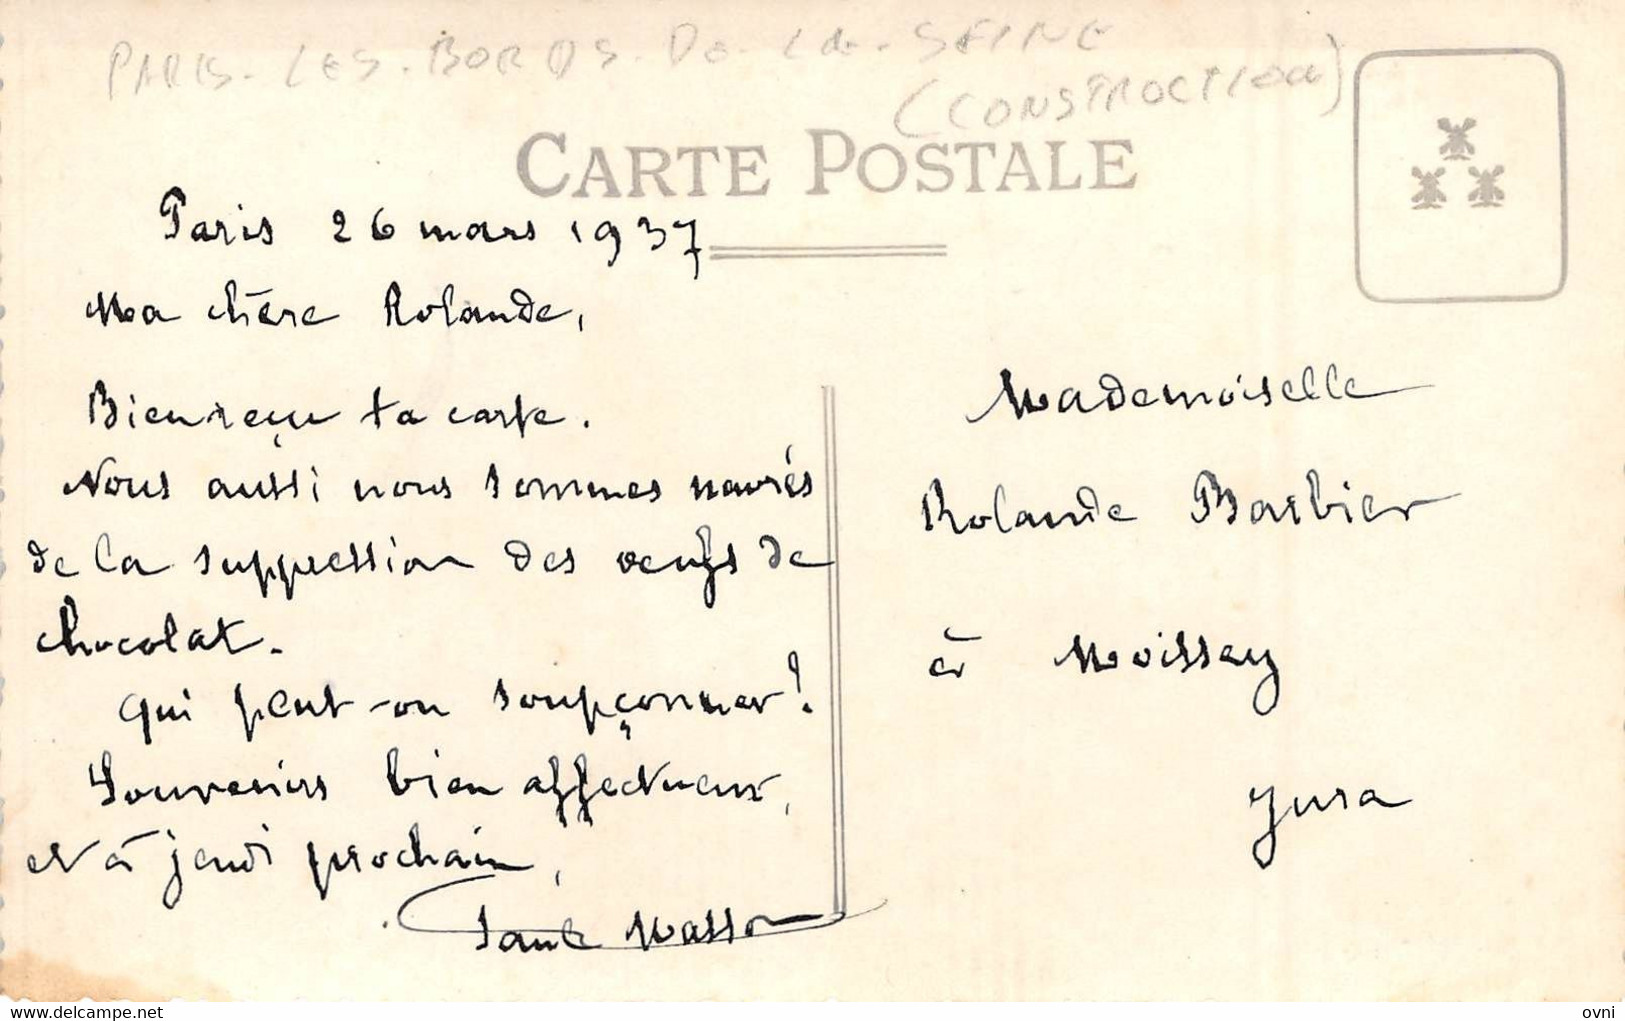 PARIS - LES - BORDS - De - La - SEINE
(CONSTRUCTION)
CARTE POSTALE
Paris 26 mars 1937
Ma chère Rolande,
Bien reçu ta carte.
Nous aussi nous sommes navrés
de la suppression des oeufs de
chocolat.
Qui peut-on soupçonner!
Souvenirs bien affectueux,
et à jeudi prochain,
Paule Masson
Mademoiselle
Rolande Barbier
à Moissey
Jura
www.delcampe.net
ovni